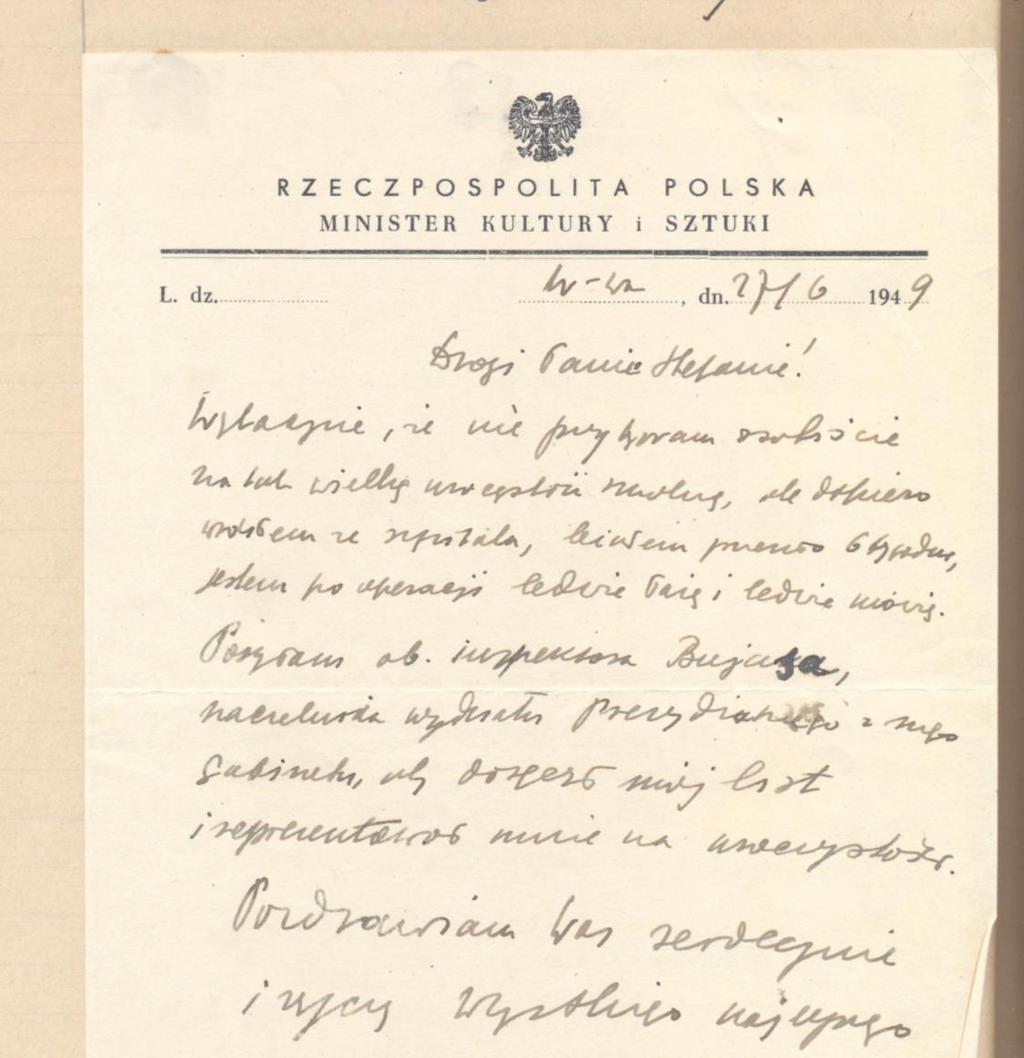 RZECZPOSPOLITA POLSKA
MINISTER KULTURY i SZTUKI
L. dz. W-wa, dn. 27/6 1949
Drogi Panie Stefanie!
Wybaczcie, że nie przybywam osobiście
na tak wielką uroczystość, ale dopiero
wróciłem ze szpitala, leżałem prawie 6 tygodni,
jestem po operacji ledwie łażę i ledwie mówię.
Posyłam ob. inspektora Bujasa,
naczelnika wydziału Prezydialnego z mego
gabinetu, aby doręczył mój list
i reprezentował mnie na uroczystości.
Pozdrawiam Was serdecznie
i życzę wszystkiego najlepszego